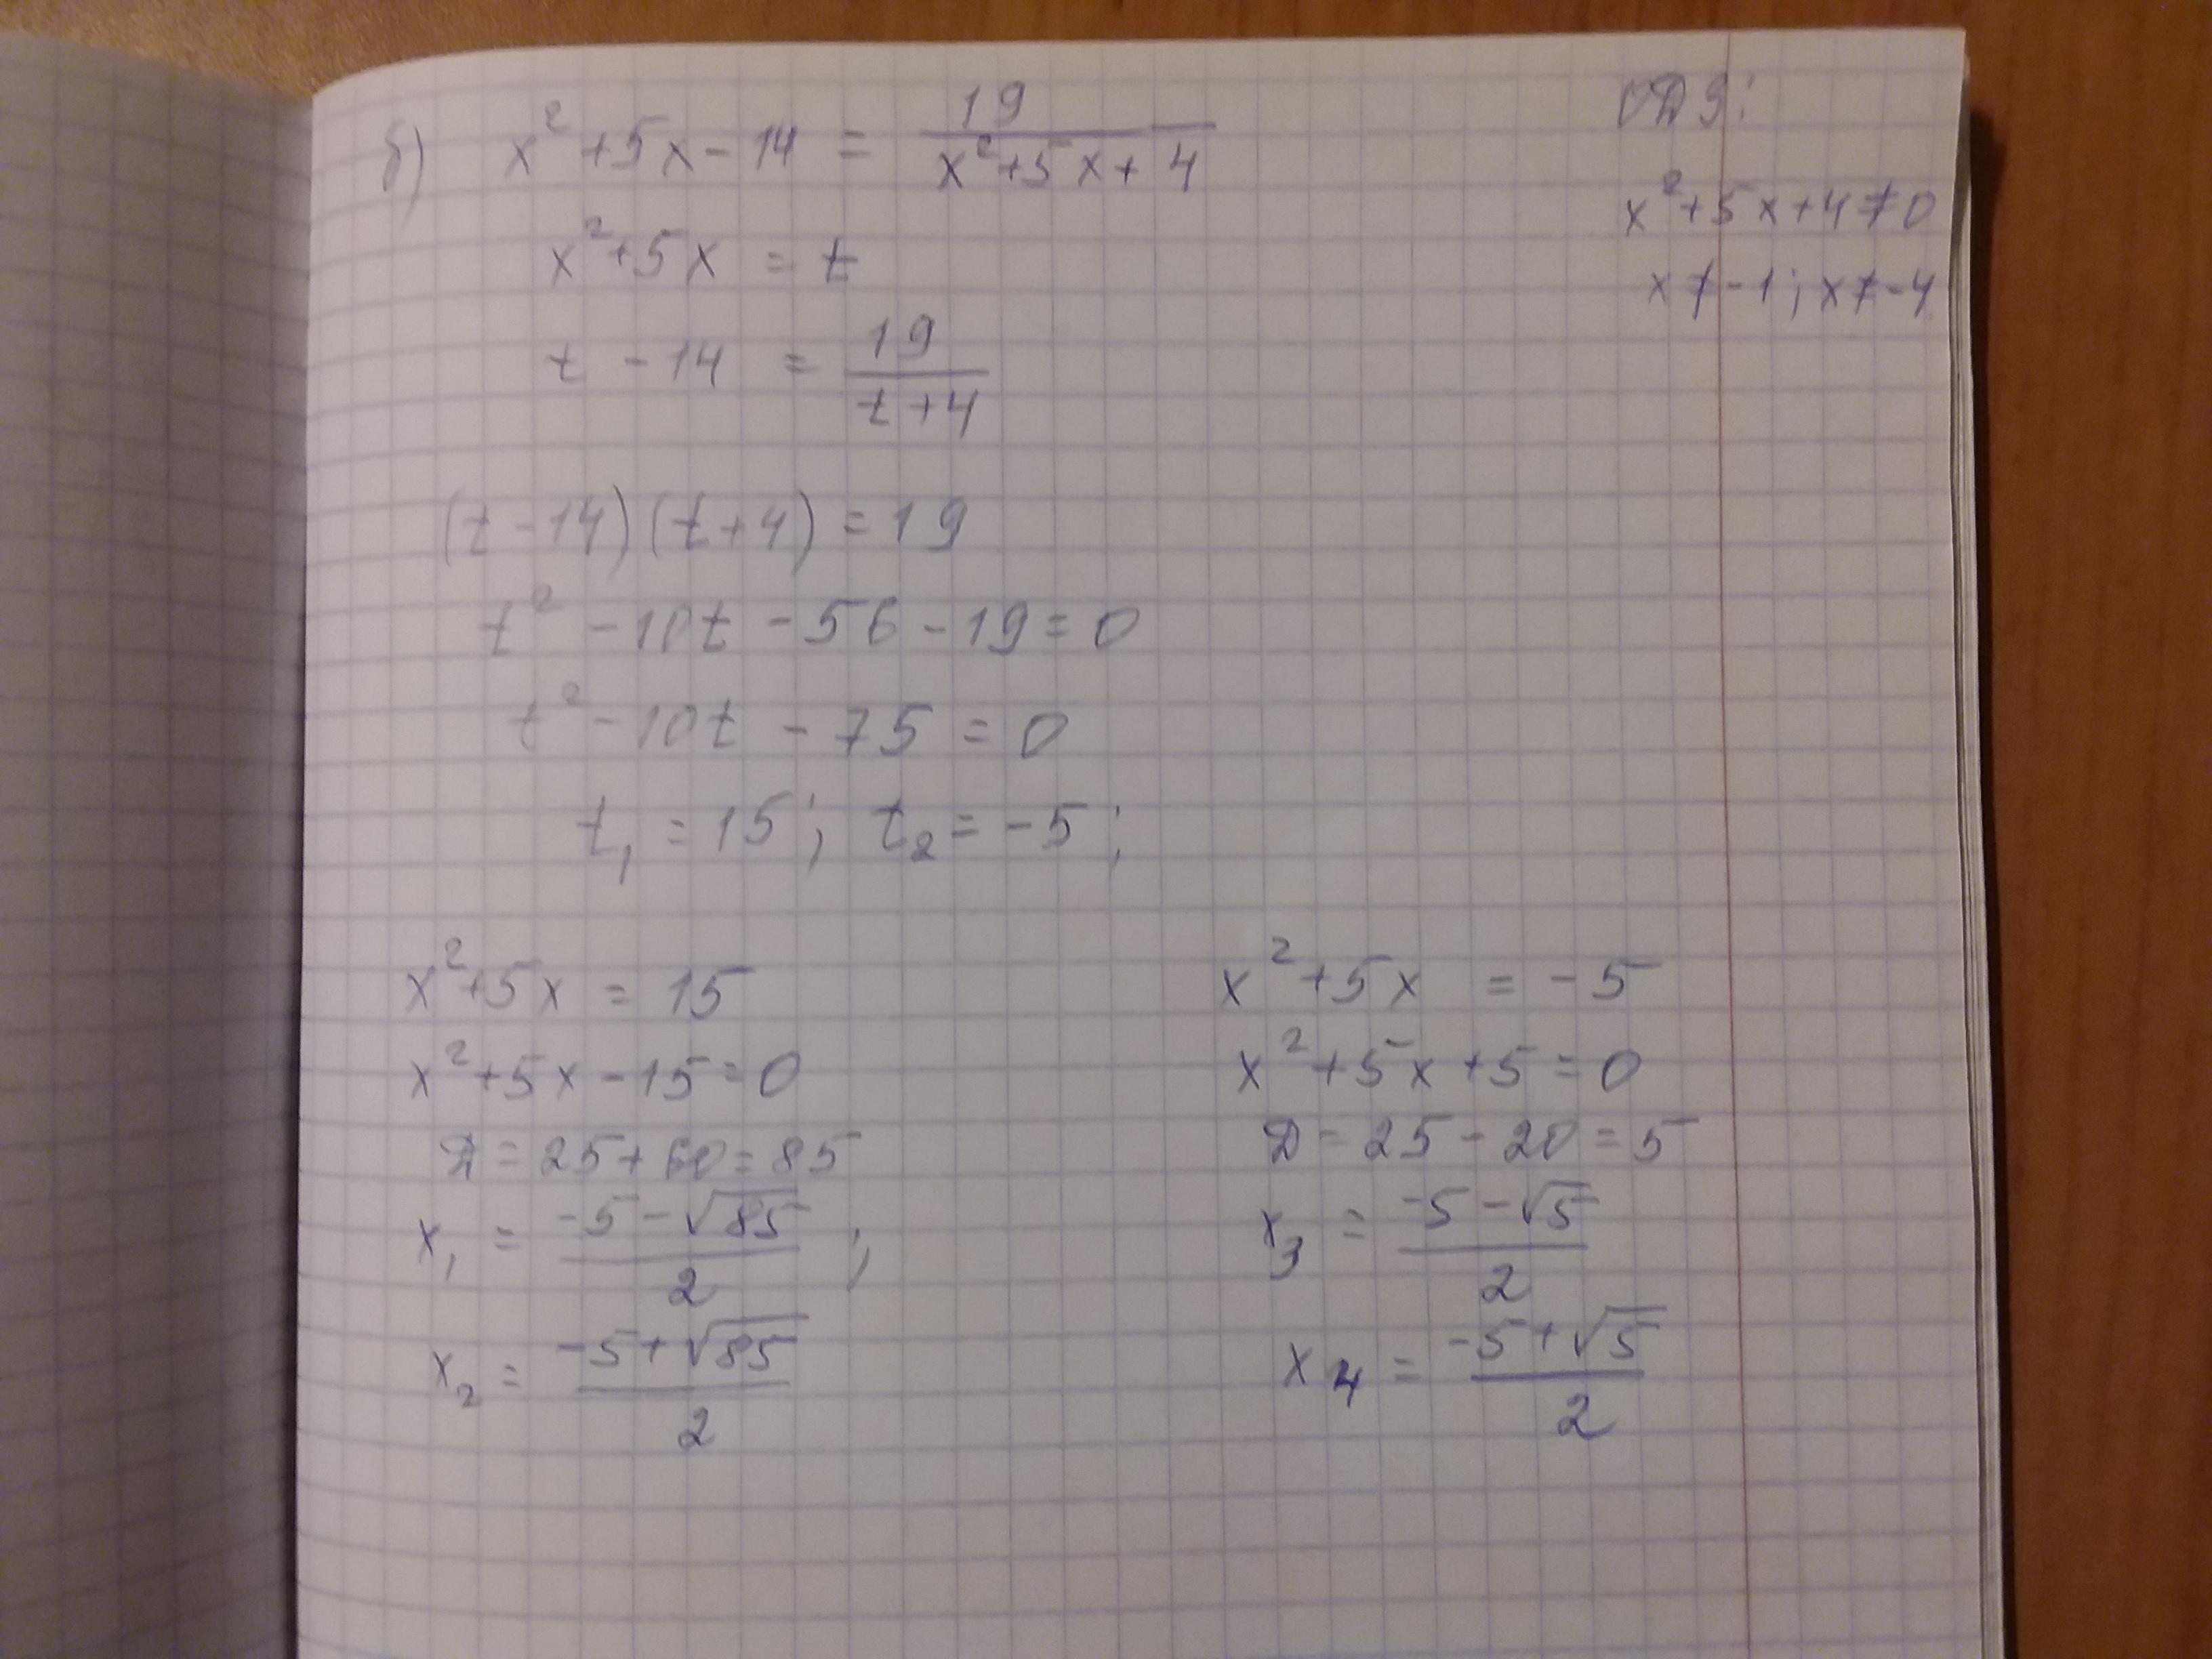 б) x² + 5x - 14 = 19/(x² + 5x + 4)
ОДЗ:
x² + 5x + 4 ≠ 0
x ≠ -1; x ≠ -4
x² + 5x = t
t - 14 = 19/(t + 4)
(t - 14)(t + 4) = 19
t² - 10t - 56 - 19 = 0
t² - 10t - 75 = 0
t₁ = 15; t₂ = -5;
x² + 5x = 15
x² + 5x - 15 = 0
Д = 25 + 60 = 85
x₁ = (-5 - √85)/2;
x₂ = (-5 + √85)/2
x² + 5x = -5
x² + 5x + 5 = 0
Д = 25 - 20 = 5
x₃ = (-5 - √5)/2
x₄ = (-5 + √5)/2